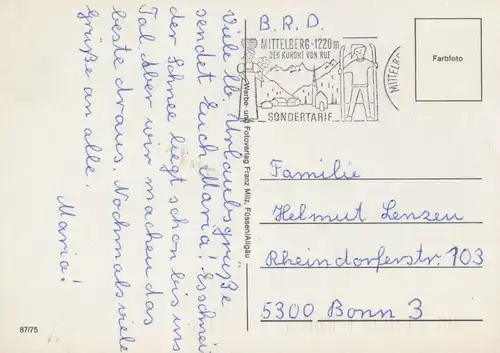 Viele lb. Urlaubsgrüße
sendet Euch Maria! Es schneit
der Schnee liegt schon bis ins
Tal. Aber wir machen das
beste draus. Nochmals viele
Grüße an alle.
Maria!
87/75
Werbe- und Fotoverlag Franz Milz, Füssen/Allgäu
B.R.D.
MITTELBERG · 1220 m
DER KURORT VON RUF
SONDERTARIF
MITTELB
Farbfoto
Familie
Helmut Lenzen
Rheindorferstr. 103
5300 Bonn 3